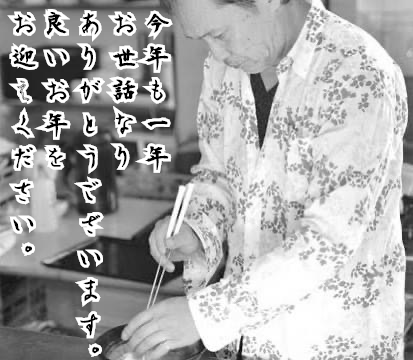 今年も一年
お世話なり
ありがとうでざいます。
良いお年を
お迎えください。